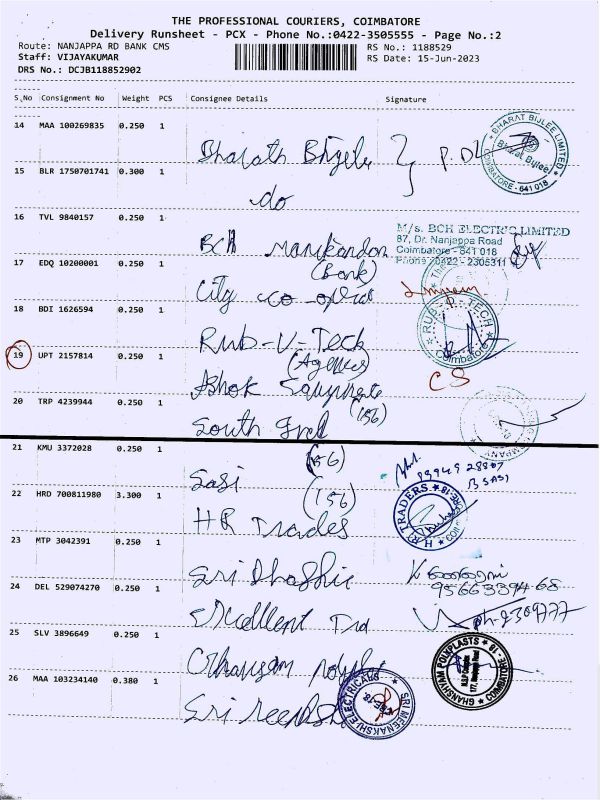 THE PROFESSIONAL COURIERS, COIMBATORE
Delivery Runsheet - PCX - Phone No.:0422-3505555 - Page No.:2
Route: NANJAPPA RD BANK CMS
RS No.: 1188529
Staff: VIJAYAKUMAR
RS Date: 15-Jun-2023
DRS No.: DCJB118852902
S.No Consignment No Weight PCS Consignee Details Signature
14 MAA 100269835 0.250 1
Bharath Bijlee P. DL
BHARAT BIJLEE LIMITED
Bharat Bijlee
COIMBATORE - 641 018
15 BLR 1750701741 0.300 1
do
16 TVL 9840157 0.250 1
BCH Manikandan
M/s. BCH ELECTRIC LIMITED
87, Dr. Nanjappa Road
Coimbatore - 641 018
Phone : 0422 - 2305311
17 EDQ 10200001 0.250 1
(Bank)
City co-operat
18 BDI 1626594 0.250 1
Rub-V-Teck
RUB. V. TECH
Coimbatore
19 UPT 2157814 0.250 1
(Agences)
Ashok
CS
20 TRP 4239944 0.250 1
(156)
South Ind
COMPANY
21 KMU 3372028 0.250 1
(156)
Sasi
B SASI
22 HRD 700811980 3.300 1
(156)
HR Trades
H.R. TRADERS
23 MTP 3042391 0.250 1
Sri
9566339468
24 DEL 529074270 0.250 1
Excellent Tra
ph-2309777
25 SLV 3896649 0.250 1
GHANSHYAM POLYPLASTS
COIMBATORE - 18
26 MAA 103234140 0.380 1
Sri
SRI MEENAKSHI ELECTRICALS
CBE-18